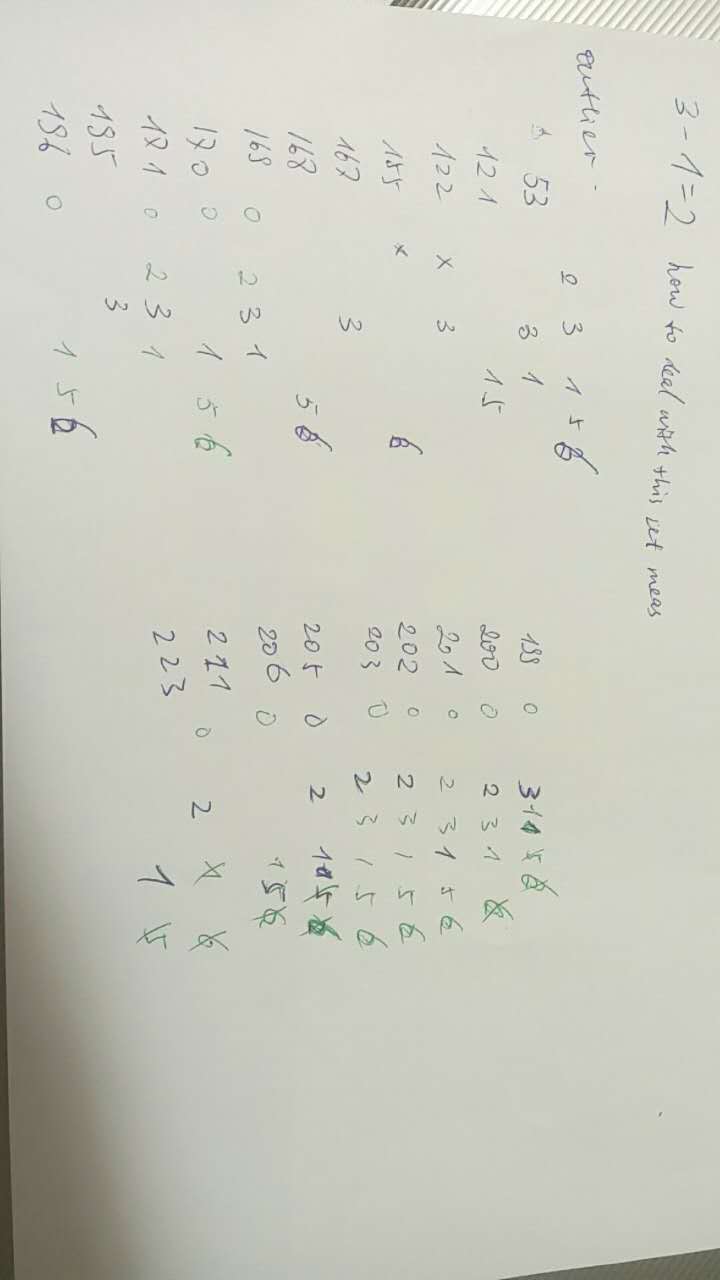 3-1=2 how to deal with this set meas
outlier.
2 3 1 5 6
53 3 1
121 1 5
122 x 3
155 x 6
167 3
168 5 6
169 0 2 3 1
170 0 1 5 6
171 0 2 3 1
195 3
196 0 1 5 6
199 0 3 1 5 6
200 0 2 3 1 6
201 0 2 3 1 5 6
202 0 2 3 1 5 6
203 0 2 3 1 5 6
205 0 2 1 5 6
206 0 1 5 6
211 0 2 x 6
223 1 5